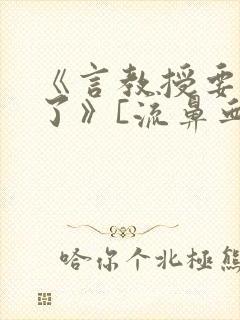 《言教授要
了》[流鼻血
哈你个北極熊